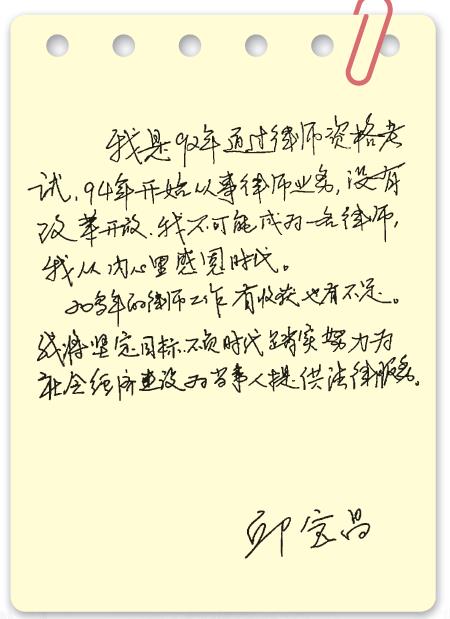 我是92年通过律师资格考
试，94年开始从事律师业务，没有
改革开放，我不可能成为一名律师，
我从内心里感恩时代。
20多年的律师工作有收获也有不足。
我将坚定目标，不负时代踏实努力为
社会经济建设为当事人提供法律服务。
邱宝昌